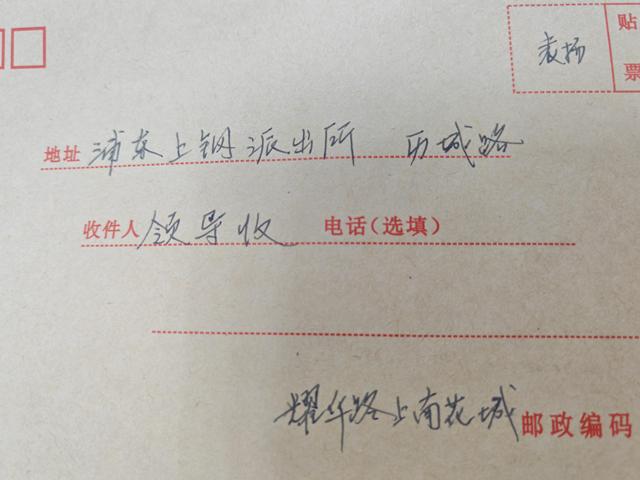 贴
票
表扬
地址 浦东上钢派出所 历城路
收件人 领导收 电话（选填）
耀华路上南花城 邮政编码